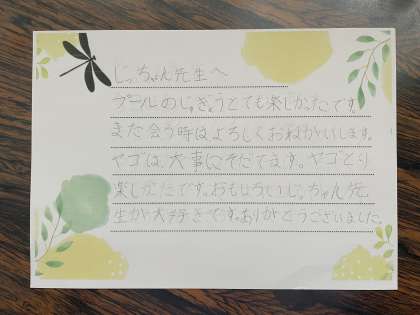 じっちゃん先生へ
プールのじゅぎょうとても楽しかたです。
また会う時はよろしくおねがいします。
ヤゴは、大事にそだてます。ヤゴとり
楽しかたです。おもしろいじっちゃん先
生が大好きです。ありがとうございました。